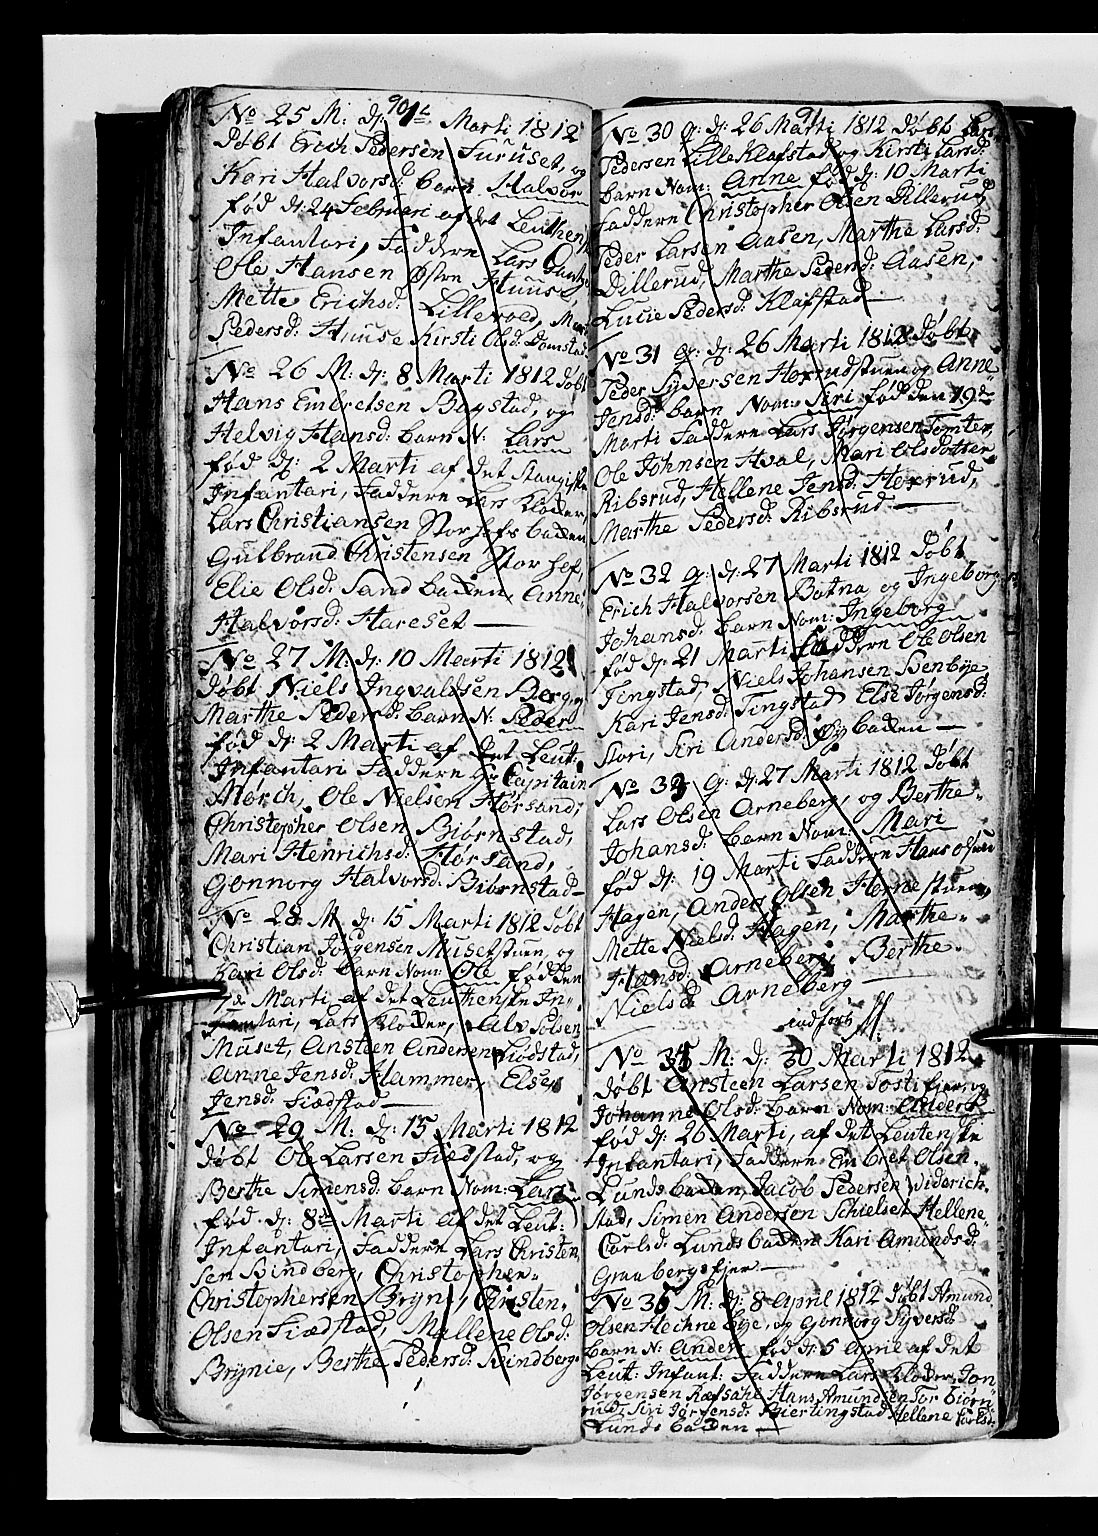 90
No 25 M: d: 1t Marti 1812
Døbt Erich Pedersen Furuset, og
Kari Halvorsd: barn Halvor
fød d: 24 Februari af det Leuthenske
Infantari, Faddere Lars
Ole Hansen Østen Huuse,
Mette Erichsd: Lillevold,
Pedersd: Huuse Kirsti Olsd: Domstad
No 26 M: d: 8 Marti 1812 Døbt
Hans Embretsen Bogstad, og
Helvig Hansd: barn N: Lars
fød d: 2 Marti af det Stangiske
Infantari, Faddere Lars Kloder,
Lars Christiansen Storhofs backen
Gulbrand Christensen Storhof,
Elie Olsd: Sand backen, Anne
Halvorsd: Hareset
No 27 M: d: 10 Marti 1812
Døbt Niels Ingvaldsen Berg, og
Marthe Pedersd: barn N: Peder
fød d: 2 Marti af det Leut:
Infantari Faddere Hr Capitain
Mørch, Ole Nielsen Hørsand,
Christopher Olsen Biørnstad,
Mari Henrichsd: Hørsand,
Gonnorg Halvorsd: Biørnstad
No 28 M d: 15 Marti 1812 Døbt
Christian Jørgensen Musetstuen, og
Kari Olsd: barn Nom: Ole fød den
Marti af det Leuthenske In-
fantari, Lars Kloder, Alv Olsen
Muset, Ansteen Andersen Fiødstad,
Anne Jensd: Flammer, Else
Jensd: Fiædstad
No 29 M: d: 15 Marti 1812
Døbt Ole Larsen Fiædstad, og
Berthe Simensd: barn Nom: Lars
fød d: 8de Marti af det Leut:
Infantari, Faddere Lars Christen
sen Svindberg, Christopher
Christophersen Bryni, Christen
Olsen Fiædstad, Mallene Olsd:
Brynie, Berthe Pedersd: Svindberg
91
No 30 g: d: 26 Marti 1812 Døbt Lars
Pedersen Lille Klafstad, og Kirsti Larsd:
barn Nom: Anne fød d: 10 Marti
Faddere Christopher Olsen Dillerud
Peder Larsen Aasen, Marthe Larsd:
Dillerud, Marthe Pedersd: Aasen,
Lucie Pedersd: Klafstad
No 31 g: d: 26 Marti 1812 Døbt
Peder Syversen Hoxrudstuen og Anne
Jensd: barn Nom: Siri fød den 19de
Marti Faddere Lars Jørgensen Tomter,
Ole Johnsen Hval, Mari Olsdotter
Ribsrud, Hellene Jensd: Hoxrud,
Marthe Pedersd: Ribsrud
No 32 g: d: 27 Marti 1812 Døbt
Erich Halvorsen Botna og Ingeborg
Johansd: barn Nom: Ingeborg
fød d: 21 Marti Faddere Ole Olsen
Tingstad, Niels Johansen Senbye
Kari Jensd: Tingstad Else Jørgensd:
Stori, Siri Andersd: Øybacken
No 33 g: d: 27 Marti 1812 Døbt
Lars Olsen Arneberg, og Berthe
Johansd: barn Nom: Mari
fød d: 19 Marti Faddere Hans Olsen
Hagen, Anders Olsen Hornestuen,
Mette Nielsd: Hagen, Marthe
Hansd: Arneberg, Berthe
Nielsd Arneberg
indført
No 35 M: d: 30 Marti 1812
Døbt Ansteen Larsen Tostifier, og
Johanne Olsd: barn Nom: Anders
fød d: 26 Marti, af det Leutenske
Infantari, Faddere Embret Olsen
Lunds backen Jacob Pedersen Diderich
stad, Simen Andersen Schielset Hellene
Carlsd: Lunds backen Kari Amundsd:
Graabergsfier
No 36 M: d: 8 April 1812 Døbt Amund
Olsen Hechne Eye, og Gonnorg Syversd:
barn N: Anders fød d: 5 April af det
Leut: Infant: Faddere Lars Kloder, Jon
Jørgensen Ræfsahl Hans Amundsen Tor biørn
rud, Siri Jørgensd: Bierlingstad Hellene Carlsd:
Lunds backen